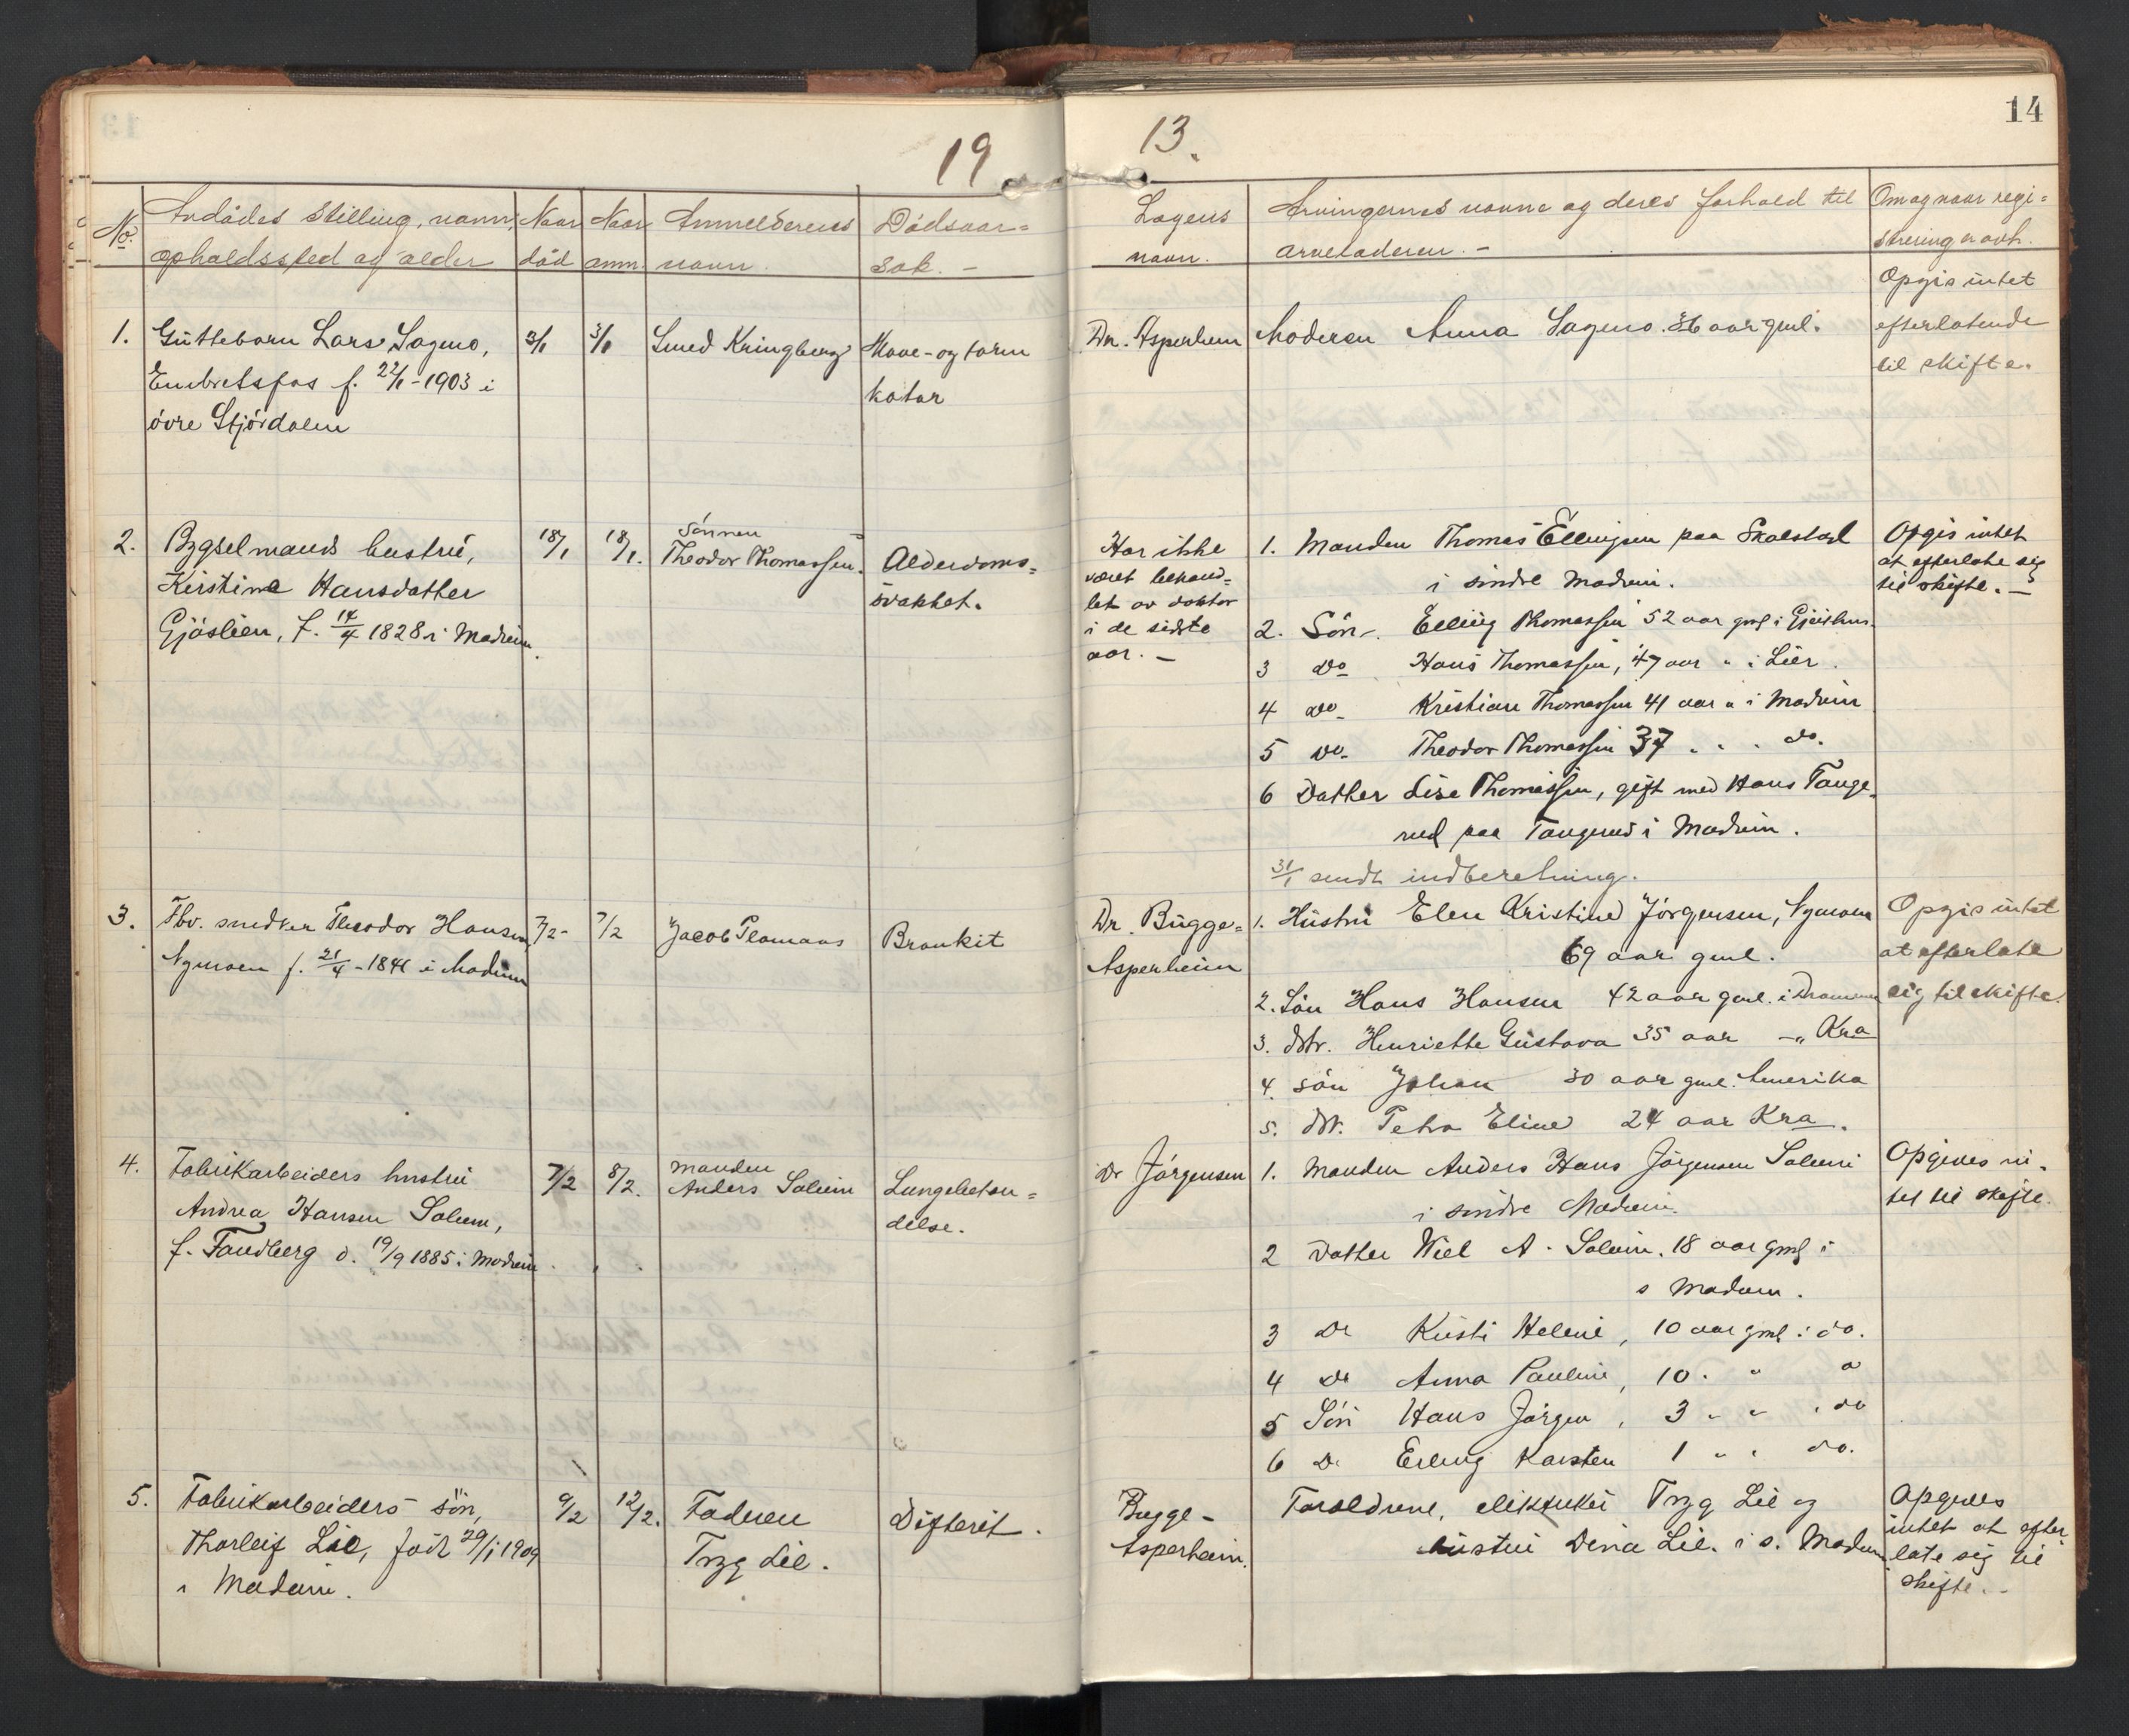 14
19 13.
No. Avdødes stilling, navn, opholdssted og alder
Naar død
Naar anm.
Anmelderens navn.
Dødsaar=
sak. -
Lægens navn.
Arvingernes navne og deres forhold til
arveladeren. -
Om og naar regi=
strering er avh.
1. Guttebarn Lars Sagmo,
Embretsfos f. 22/1-1903 i
øvre Stjørdalen
3/1
Smed Kringberg
Mave- og tarm
katar
Dr. Asperheim
Moderen Anna Sagmo. 36 aar gml.
Opgis intet
efterlatende
til skifte.
2. Bygselmands hustru,
Kirstine Hansdatter
Gjøslien, f. 14/4 1828 i Modum.
18/1
18/1.
Sønnen
Theodor Thomassen.
Alderdoms=
svakhet.
Har ikke
været behand=
let av doktor
i de sidste
aar. -
1. Manden Thomas Ellingsen paa Skalstad
i søndre Modum.
2. Søn -. Elling Thomassen 52 aar gml i Gjeithus.
3 do Hans Thomassen, 47 aar " i Lier.
4 do. Kristian Thomassen 41 aar " i Modum
5 do. Theodor Thomassen 37 " " " do.
6 Datter Lise Thomassen, gift med Hans Tange=
rud paa Tangerud i Modum.
31/1 sendt indberetning.
Opgis intet
at efterlate sig
til skifte. -
3. Fhv. snedker Theodor Hansen
Nymoen f. 21/4-1841 i Modum
7/2-
7/2
Jacob Thomaas
Bronkit
Dr. Bugge=
Asperheim
1. Hustru Elen Kristine Jørgensen, Nymoen
69 aar gml.
2. Søn Hans Hansen 42 aar gml. i Drammen
3. dtr. Henriette Gustava 35 aar -" Kra
4. søn Johan 30 aar gml. Amerika
5. dtr. Petra Eline 24 aar Kra.
Opgis intet
at efterlate
sig til skifte.
4. Fabrikarbeiders hustru
Andrea Hansen Solum,
f. Tandberg d. 19/9 1885 i Modum.
7/2
8/2.
Manden
Anders Solum
Lungebetæn=
delse.
Dr Jørgensen
1. Manden Anders Hans Jørgensen Solum
i søndre Modum.
2 Datter A. Solum. 18 aar gml i
s Modum.
3 Do Kirsti Helene, 10 aar gml i do.
4 Do Anna Pauline, 10 " " "
5 Søn Hans Jørgen, 3 " " " do
6 Do Erling Karsten 1 " " do.
Opgives in=
tet til skifte.
5. Fabrikarbeiders søn,
Thorleif Lie, født 29/1 1909
i Modum.
9/2
12/2.
Faderen
Tryg Lie.
Difterit.
Bugge-
Asperheim.
Forældrene, Tryg Lie og
hustru Dina Lie. i s. Modum.
Opgives
intet at efter
late sig til
skifte. -